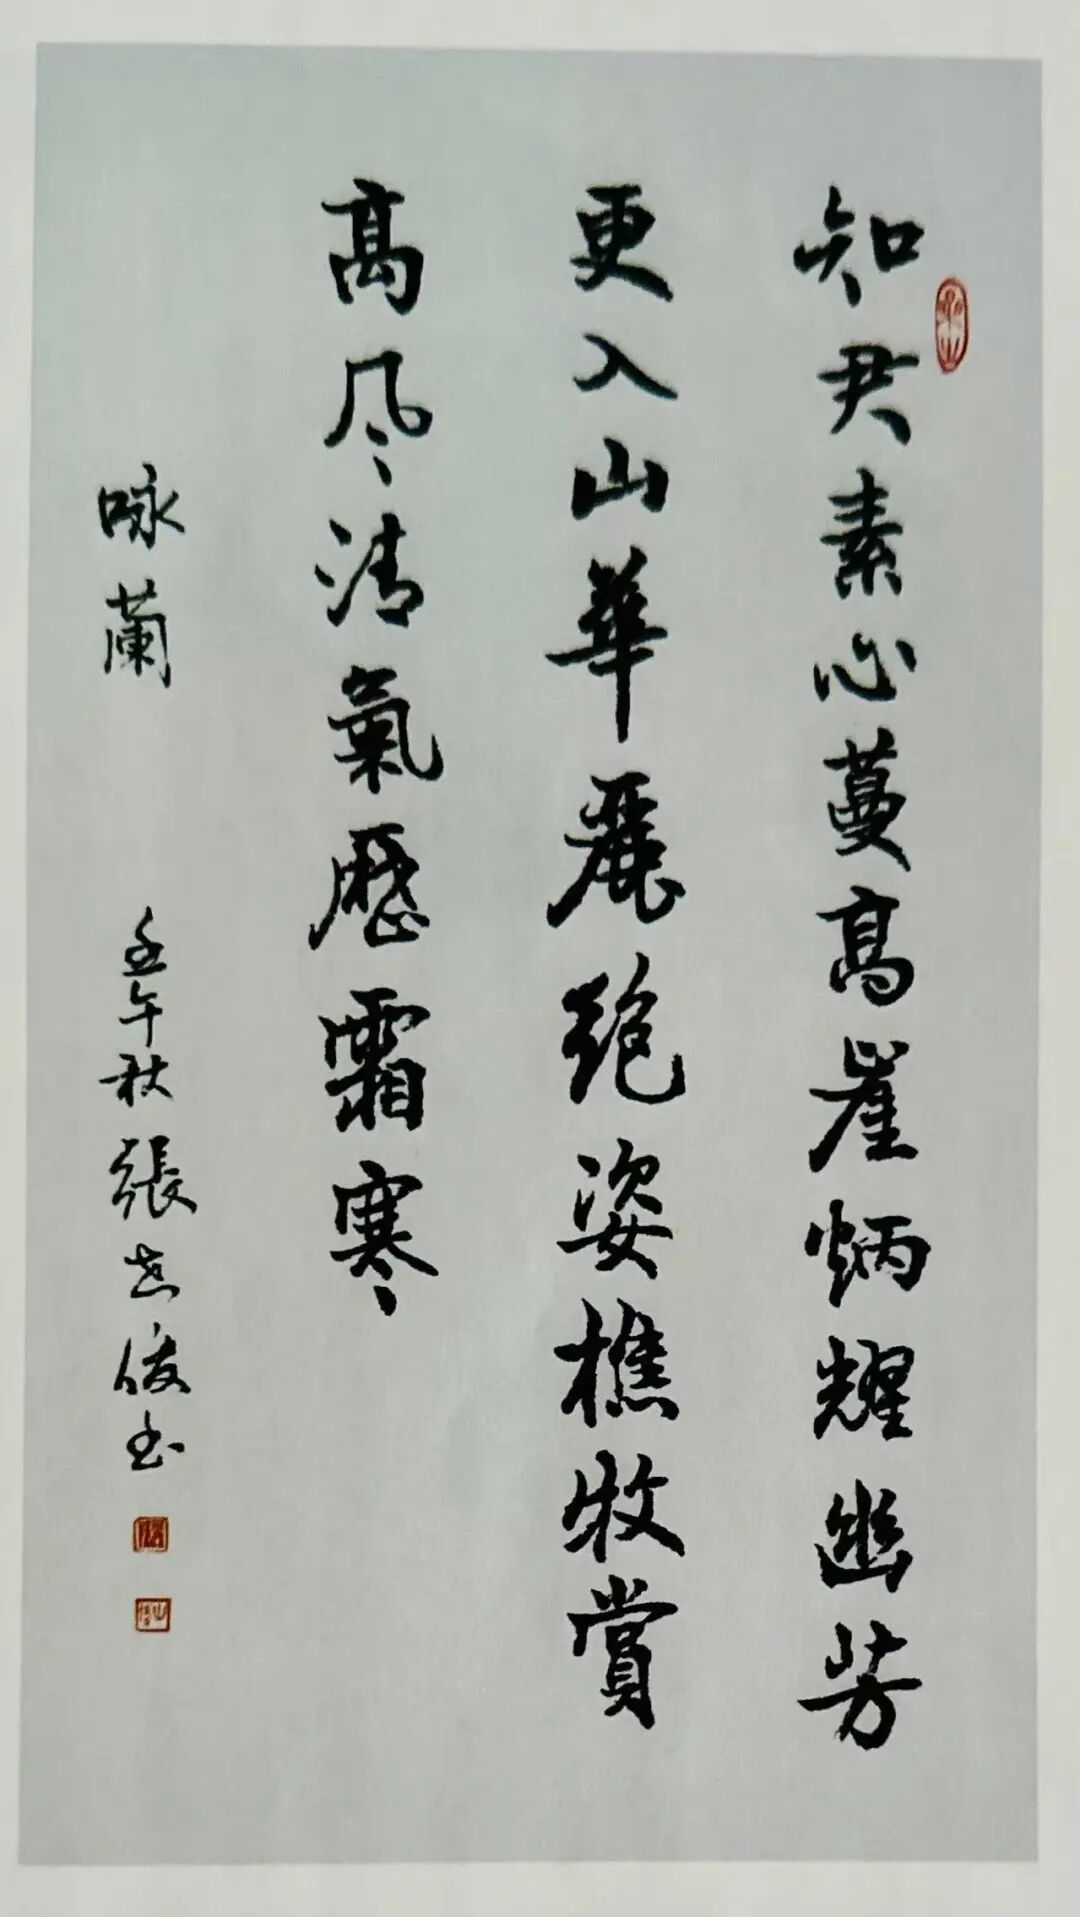 知君素心蔓高崖炳耀幽芳
更入山華麗絕姿樵牧賞
高風清氣歷霜寒
咏蘭 壬午秋張志俊書